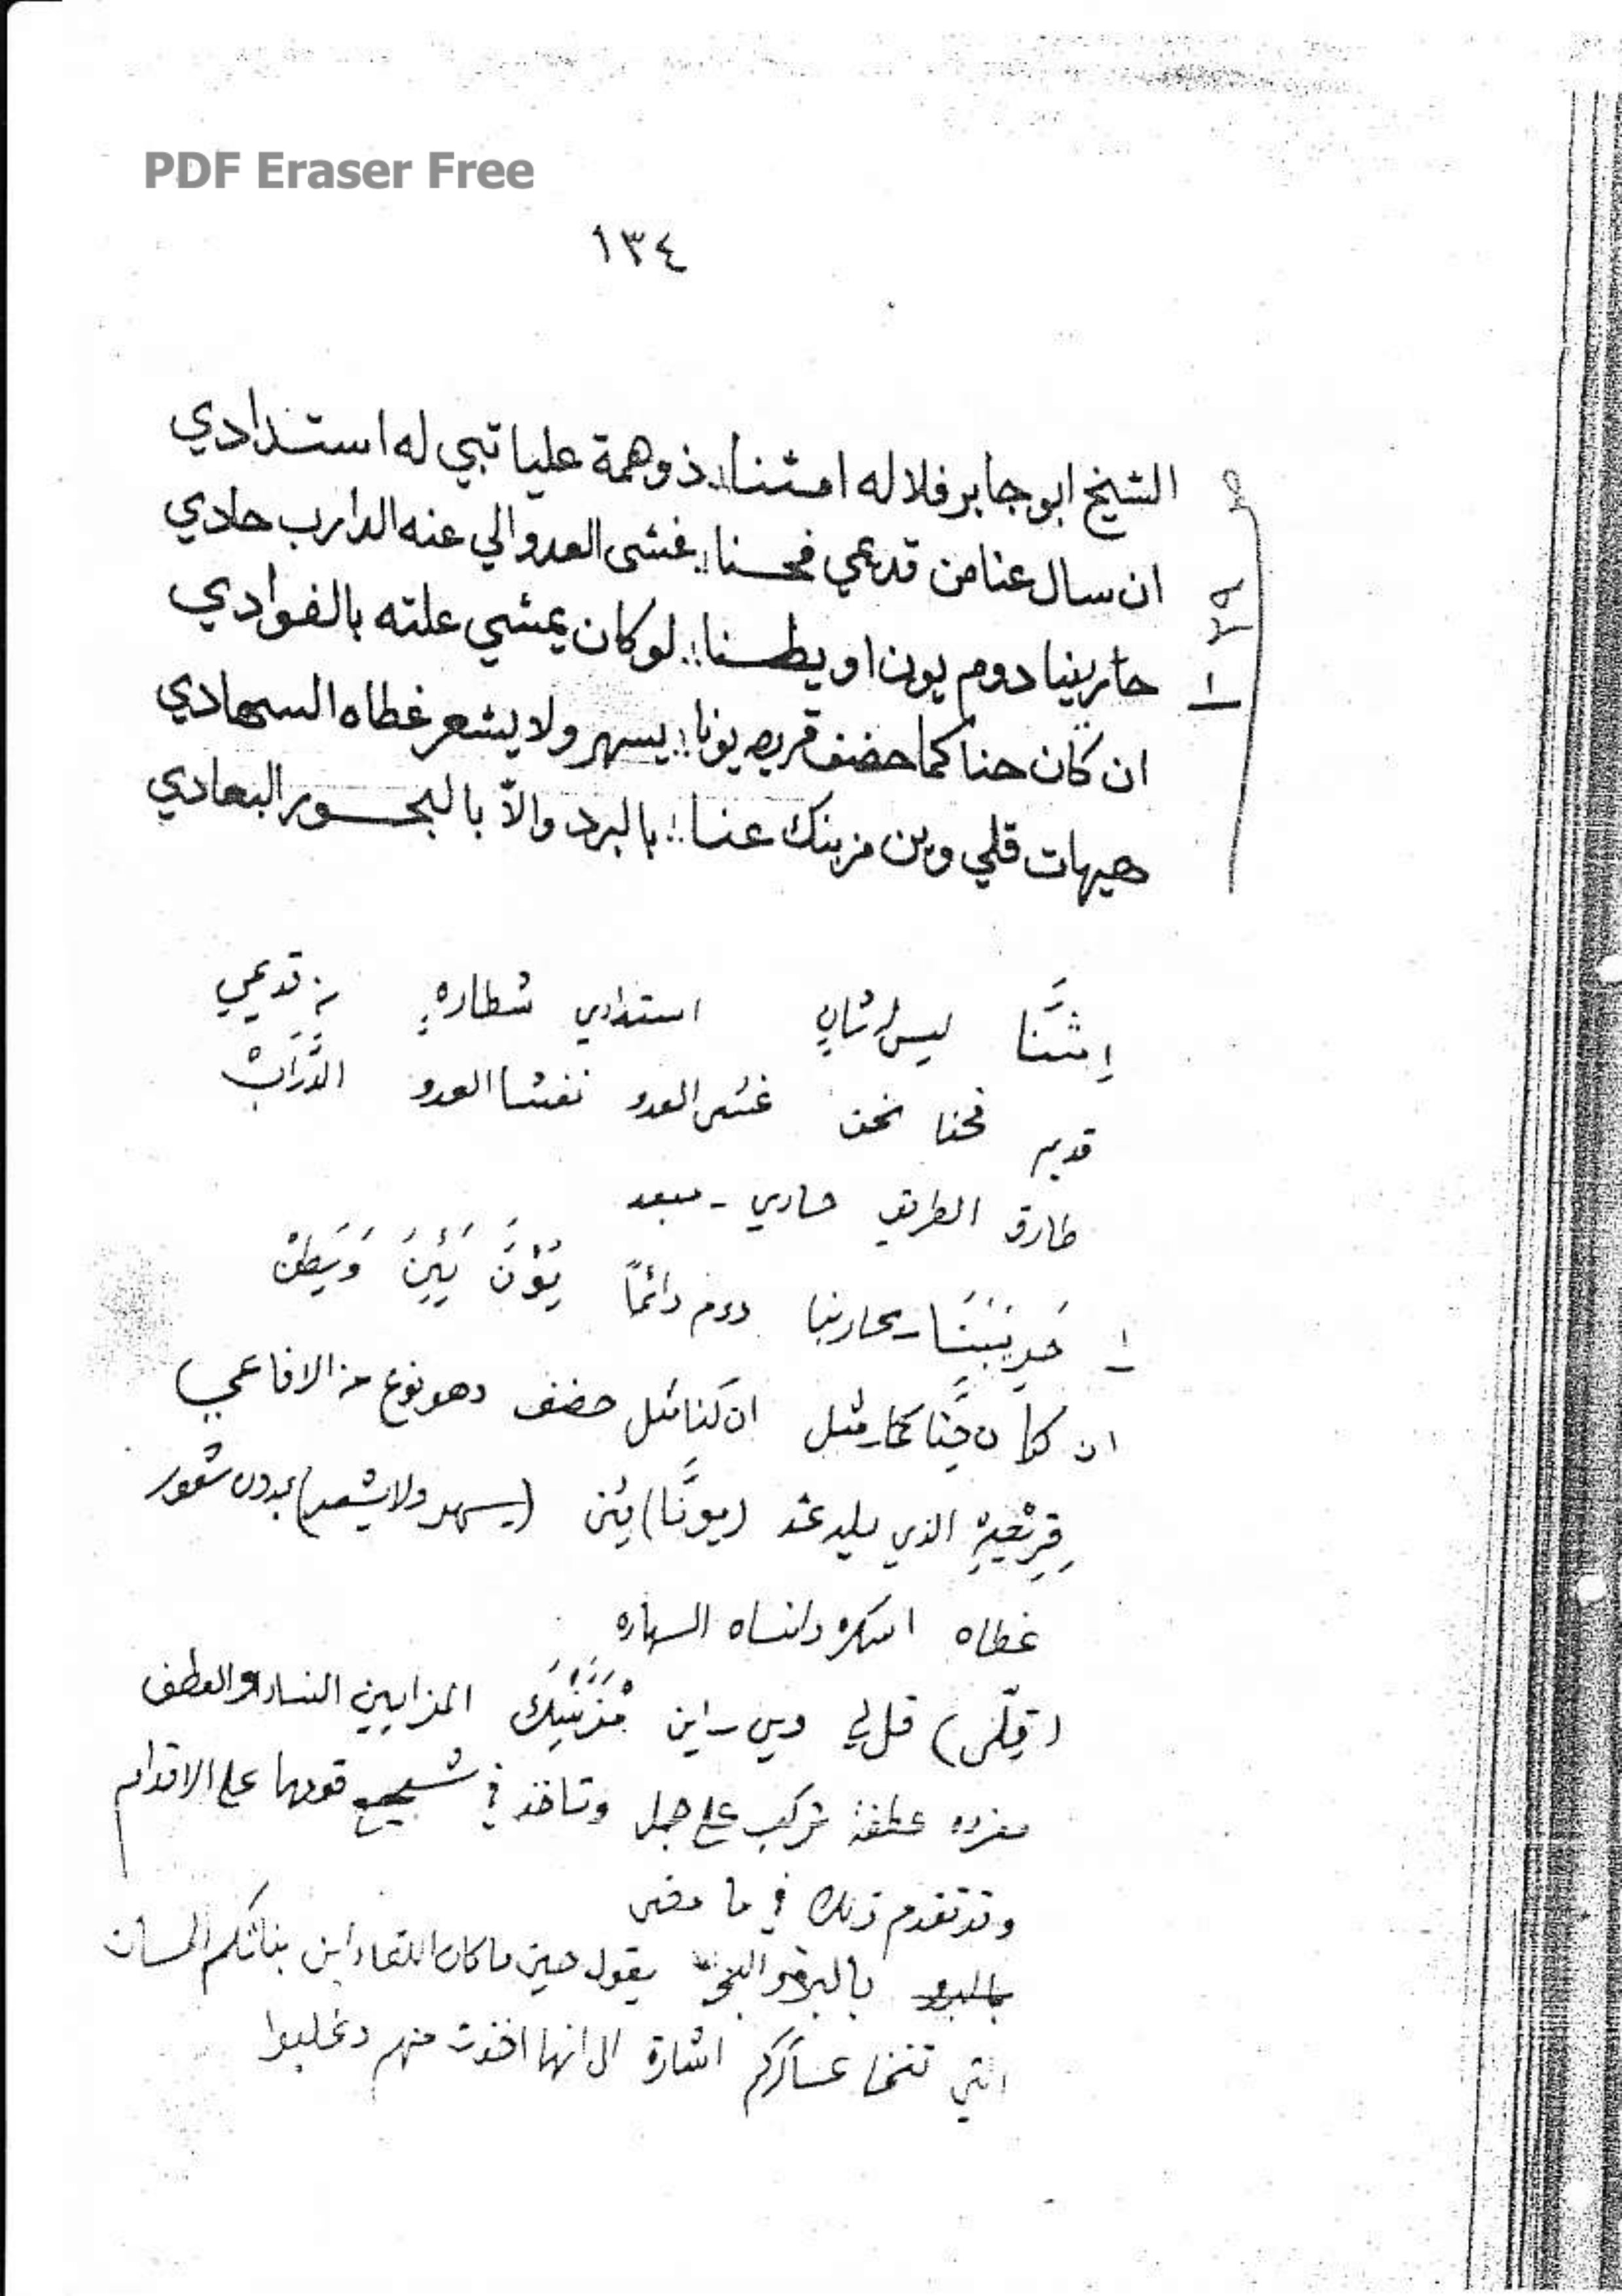 PDF Eraser Free
١٣٤
الشيخ ابو جابر فلا له امثنا :. ذو همة عليا تبي له استدادي
ان سال عنا من قديمي فحنا :. غشى العدو الي عنه الدارب حادي
حاربنيا دوم يون او يطسنا :. لو كان يمشي علته بالفوادي
ان كان حنا كما حضف قريصه يونا :. يسهر ولا يشعر غطاه السهادي
هيهات قلي وين مزينك عنا :. بالبرد والاّ بالبحور البعادي
ص ٢٩
١
اِمثَنَّا ليس له ثانٍ استدادي شطاره من قديمي
قديم فحنا نحن غشى العدو نغشا العدو الدَّرَابْ
طارق الطريق حادي - مبعد
١ - محاربنا دوم دائماً يُوْنَ يَئِنَ وَيَطنْ
ان كان حِنَّا كما مثل ان كنا مثل حضف وهو نوع من الافاعي
قِرِيْصِهْ الذي يلدغه (يونَّا) يئن (يسهر ولا يشعر) بدون شعور
غطاه اسكره وانساه السهاده
(قِلّي) قل لي وين - اين مْزَيْنِكْ المزايين النساء والعطف
مفرده عطفة تركب على جمل وتاخذ في تشجيع قومها على الاقدام
وقد تقدم ذلك في ما مضى
بالبرد والبحر يقول حين ما كان اللقاء اين بناتكم الحسان
التي تنخا عساكركم اشارة الى انها اخذت منهم وغلبوا